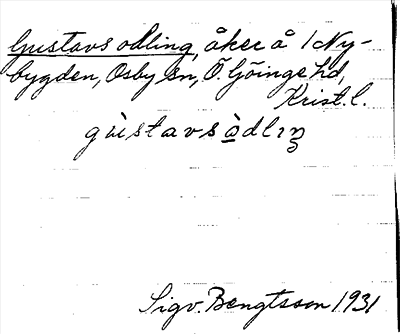 Gustavsodling, åker å 1 Ny-
bygden, Osby sn, Ö. Göinge hd,
Krist. l.
gùstavsòdlıŋ
Sigv. Bengtsson 1931